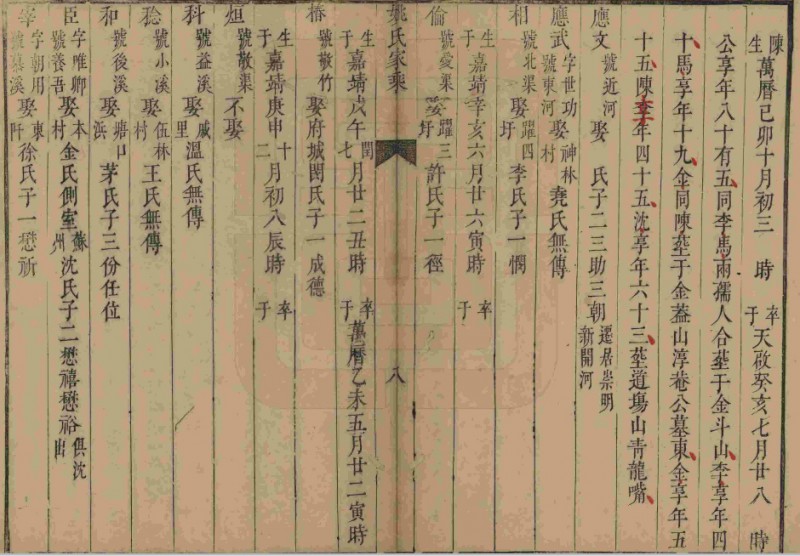 陳生萬曆己卯十月初三 時 卒于天啟癸亥七月廿八 時
公享年八十有五同李馬兩孺人合塟于金斗山李享年四
十馬享年十九金同陳塟于金蓋山淳菴公墓東金享年五
十五陳李年四十五沈享年六十三塟道塲山青龍嘴
應文 號近河 娶 氏子二三助三朝 遷居崇明新開河
應武 字世功號東河 娶神林村堯氏無傳
相 號北渠 娶躍四圩李氏子一憫
生于嘉靖辛亥六月廿六寅時 卒于
倫 號愛渠 娶躍三圩許氏子一徑
姚氏家乘 八
生于嘉靖戊午閏七月廿二丑時 卒于萬曆乙未五月廿二寅時
椿 號敬竹 娶府城閔氏子一成德
生于嘉靖庚申十二月初八辰時 卒于
烜 號敬渠 不娶
科 號益溪 娶咸里溫氏無傳
稔 號小溪 娶伍林村王氏無傳
和 號後溪 娶塘口浜茅氏子三份任位
臣 字唯卿號養吾 娶本村金氏側室蘇州沈氏子二懋禧懋裕俱沈出
宰 字朝用號慕溪 娶東阡徐氏子一懋祈